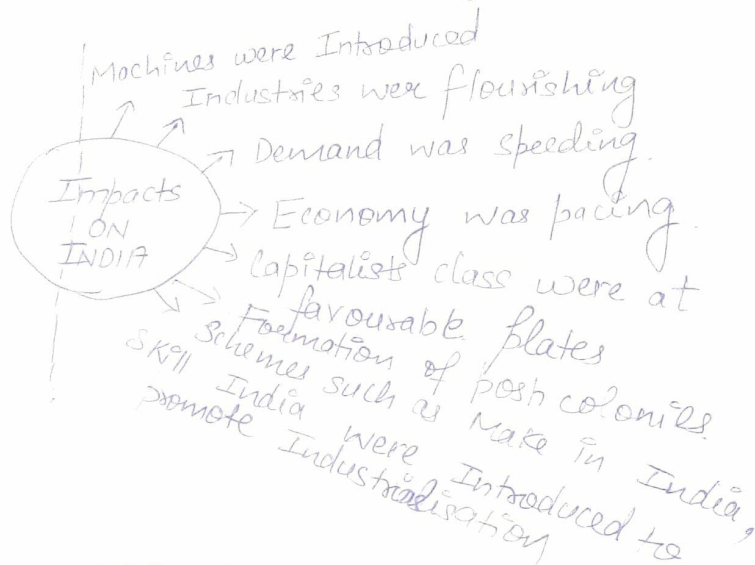 Machines were Introduced
Industries wer flourishing
Demand was speeding.
Impacts
ON
INDIA
Economy was pacing.
Capitalists class were at
favourable plates
Formation of posh colonies.
Schemes such as Make in India,
Skill India were Introduced to
promote Industrialisation